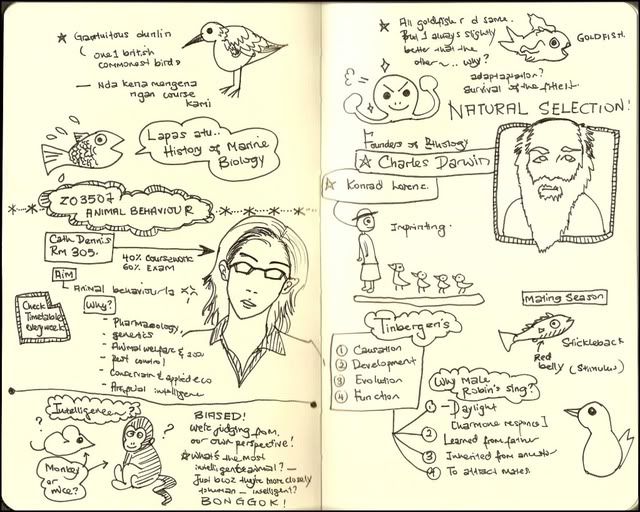 ★ Gratuitous dunlin
( one of british
commonest birds
— Nda kena mengena
ngan course
kami
Lapas atu..
History of Marine
Biology
ZO3507
ANIMAL BEHAVIOUR
Cath Dennis
RM 305.
40% Coursework
60% Exam
Aim
Animal behaviour la
Check
Timetable
every week
Why?
- Pharmacology,
genetics
- Animal welfare & zoo
- Pest control
- Conservation & applied eco
- Artificial intelligence
Intelligence?
?
?
Monkey
or
mice?
BIASED!
We're judging from
our own perspective!
★ What's the most
intelligent animal? —
Just bcoz they're more closely
to human — intelligent?
BONGGOK!
★ All goldfish r d same.
But 1 always slightly
better than the
other~.. why?
GOLDFISH.
adaptation?
survival of the fittest.
NATURAL SELECTION!
Founders of Ethology
☆ Charles Darwin
☆ Konrad Lorenz.
Inprinting.
Mating Season
Stickleback
Red
belly
(Stimulus)
Tinbergen's
① Causation
② Development
③ Evolution
④ Function
Why Male
Robin's sing?
① - Daylight
[harmone respons]
② Learned from father
③ Inherited from ancestor
④ To attract mates